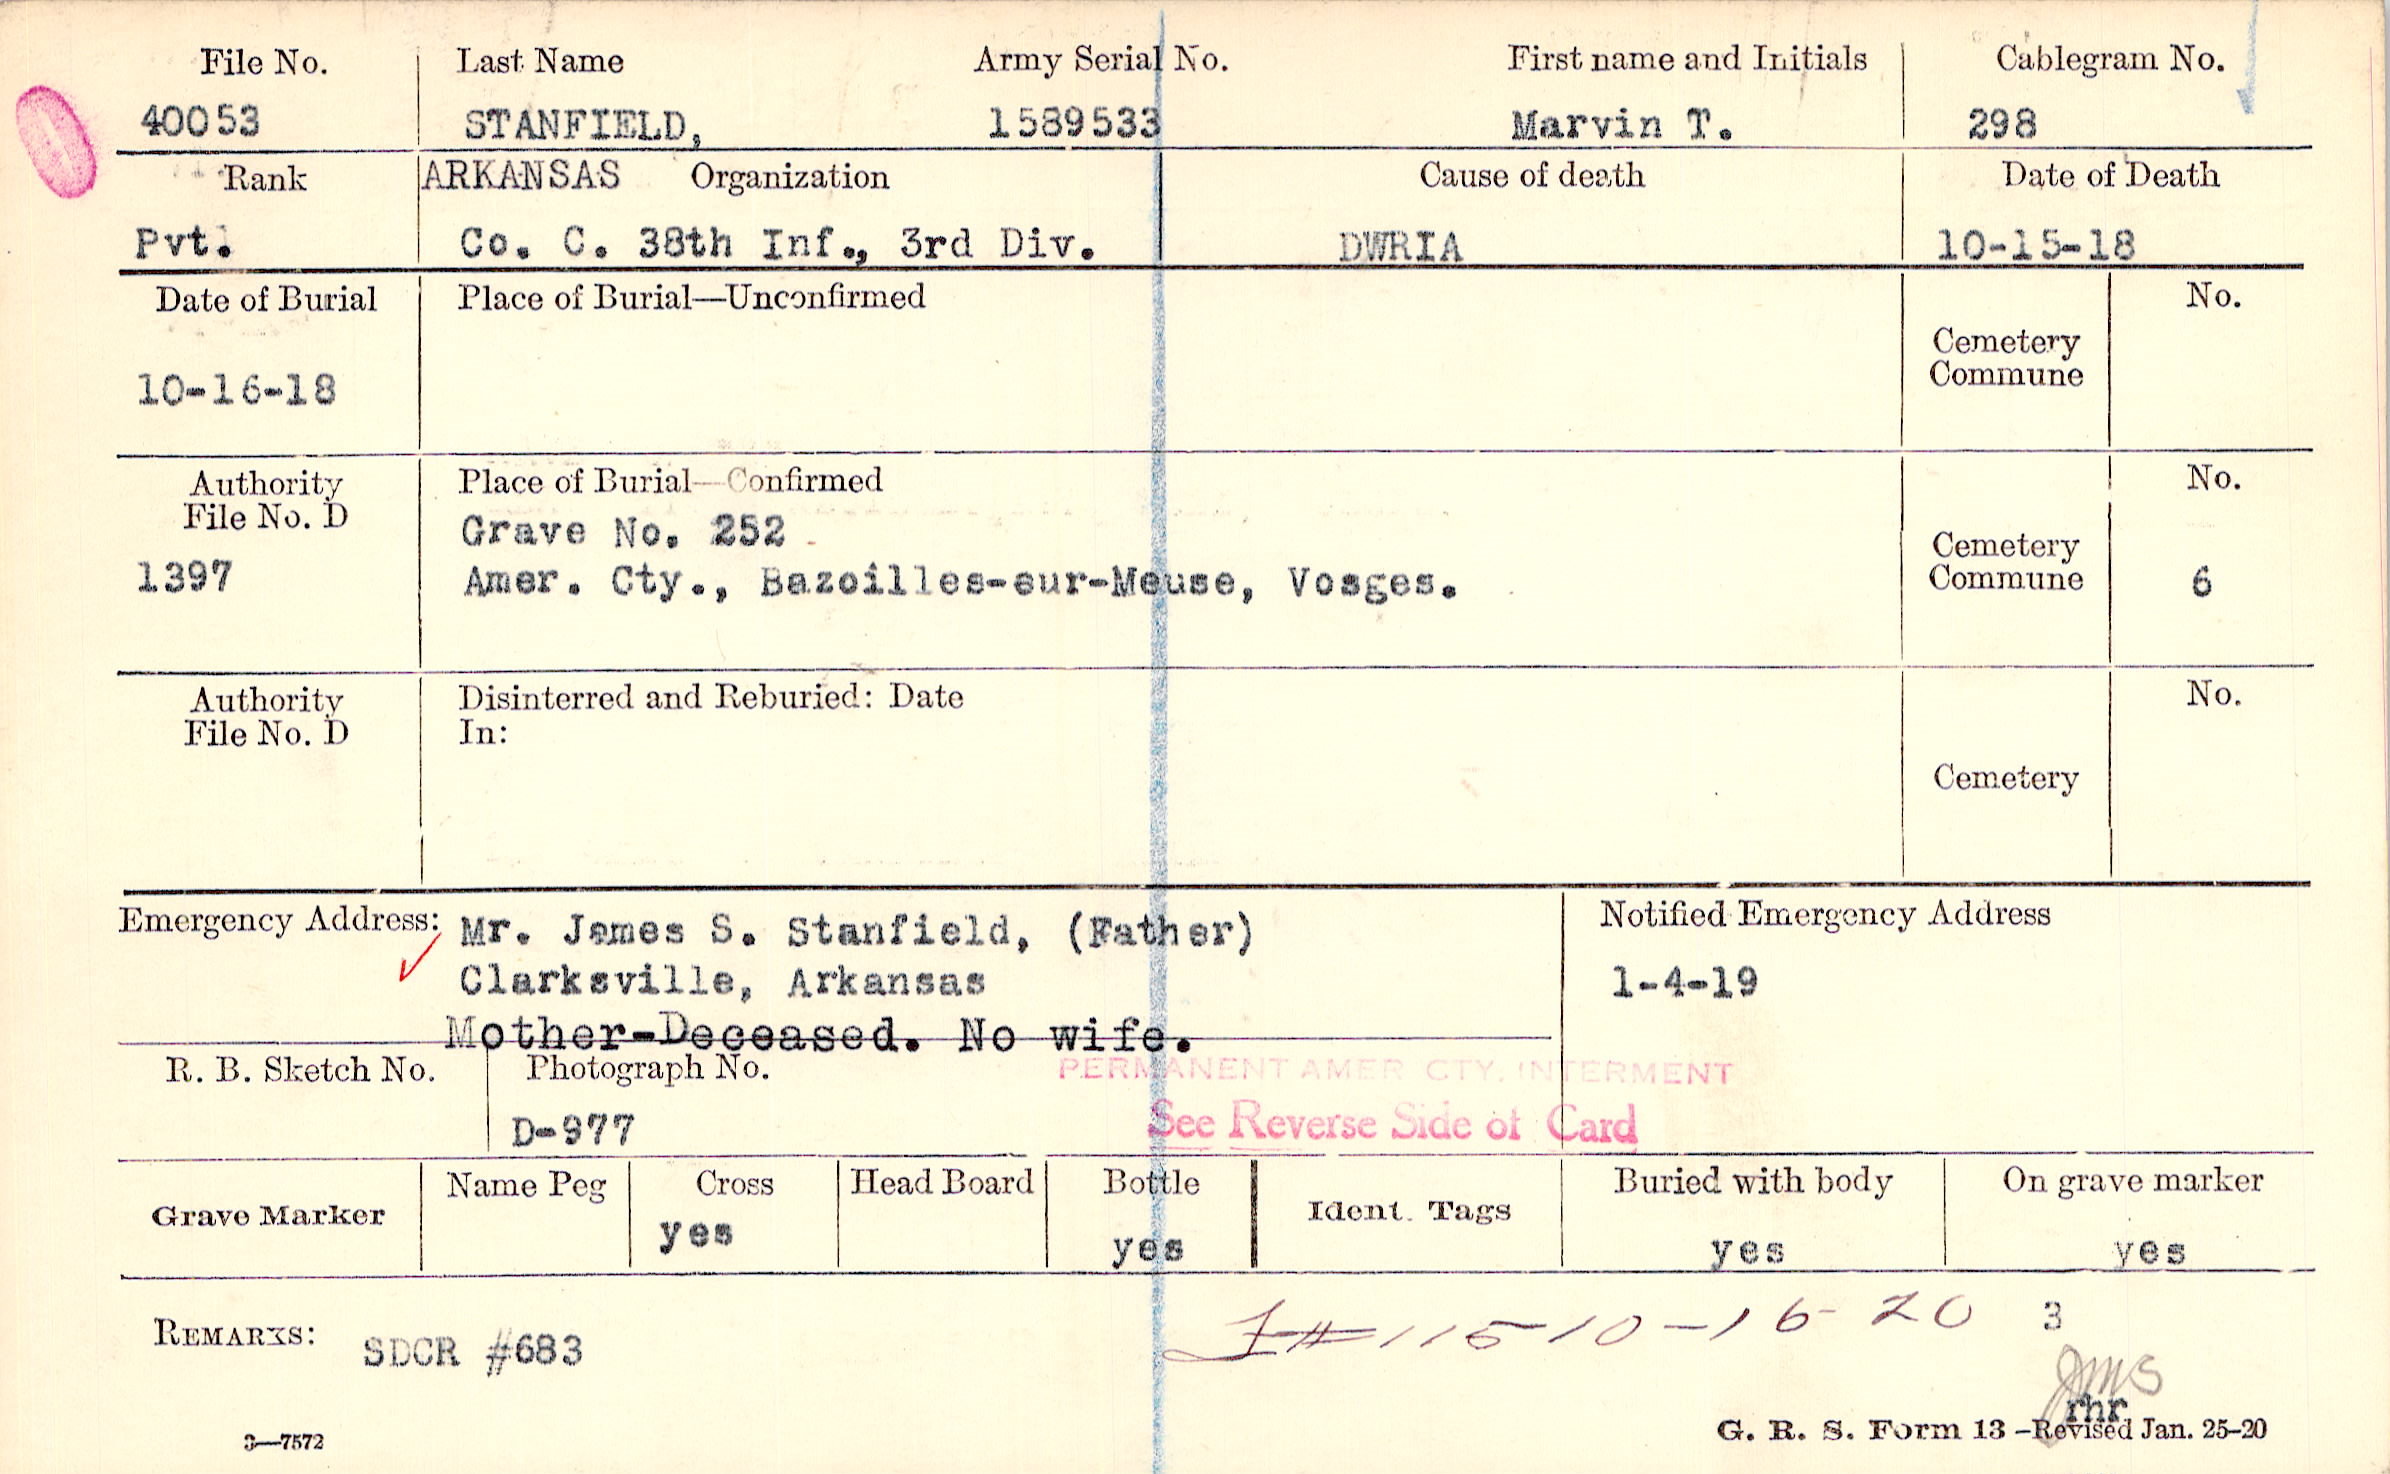 File No. Last Name Army Serial No. First name and Initials Cablegram No.
40053 STANFIELD, 1589533 Marvin T. 298
Rank ARKANSAS Organization Cause of death Date of Death
Pvt. Co. C. 38th Inf., 3rd Div. DWRIA 10-15-18
Date of Burial Place of Burial—Unconfirmed No.
Cemetery
Commune
10-16-18
Authority Place of Burial—Confirmed No.
File No. D Grave No. 252
Cemetery
1397 Amer. Cty., Bazoilles-sur-Meuse, Vosges. Commune 6
Authority Disinterred and Reburied: Date No.
File No. D In:
Cemetery
Emergency Address: Mr. James S. Stanfield, (Father) Notified Emergency Address
Clarksville, Arkansas 1-4-19
Mother-Deceased. No wife.
R. B. Sketch No. Photograph No. PERMANENT AMER CTY. INTERMENT
D-977 See Reverse Side of Card
Grave Marker Name Peg Cross Head Board Bottle Ident. Tags Buried with body On grave marker
yes yes yes yes
REMARKS: SDCR #683 # 115-10-16-20 3
JMS
rhr
3—7572 G. R. S. Form 13 —Revised Jan. 25-20